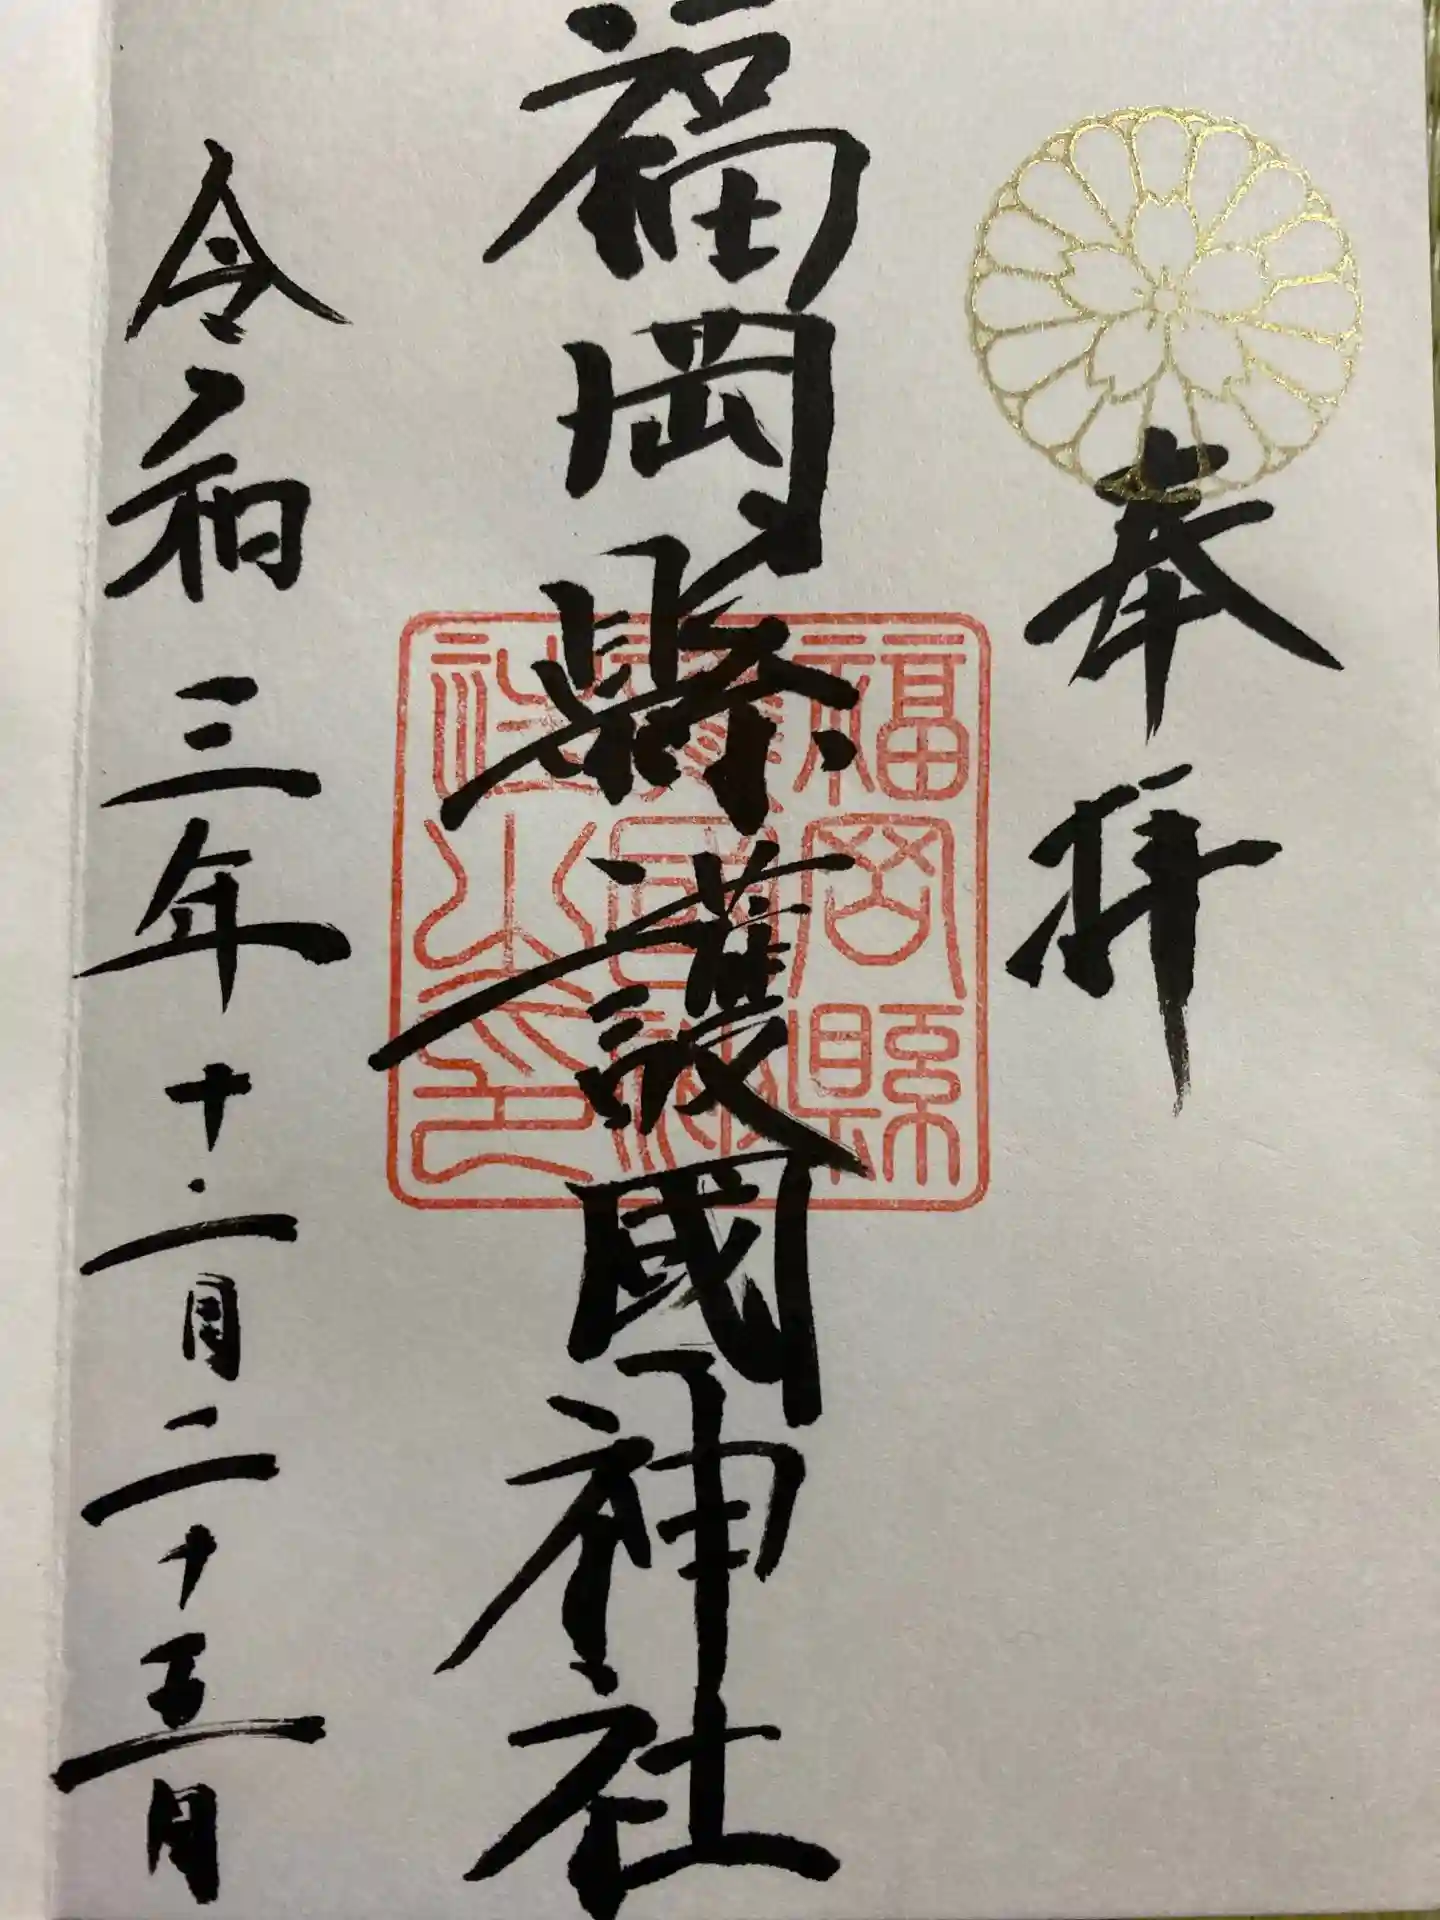 奉拝
福岡縣護國神社
福岡縣
護國神
社之印
令和三年十二月二十五日